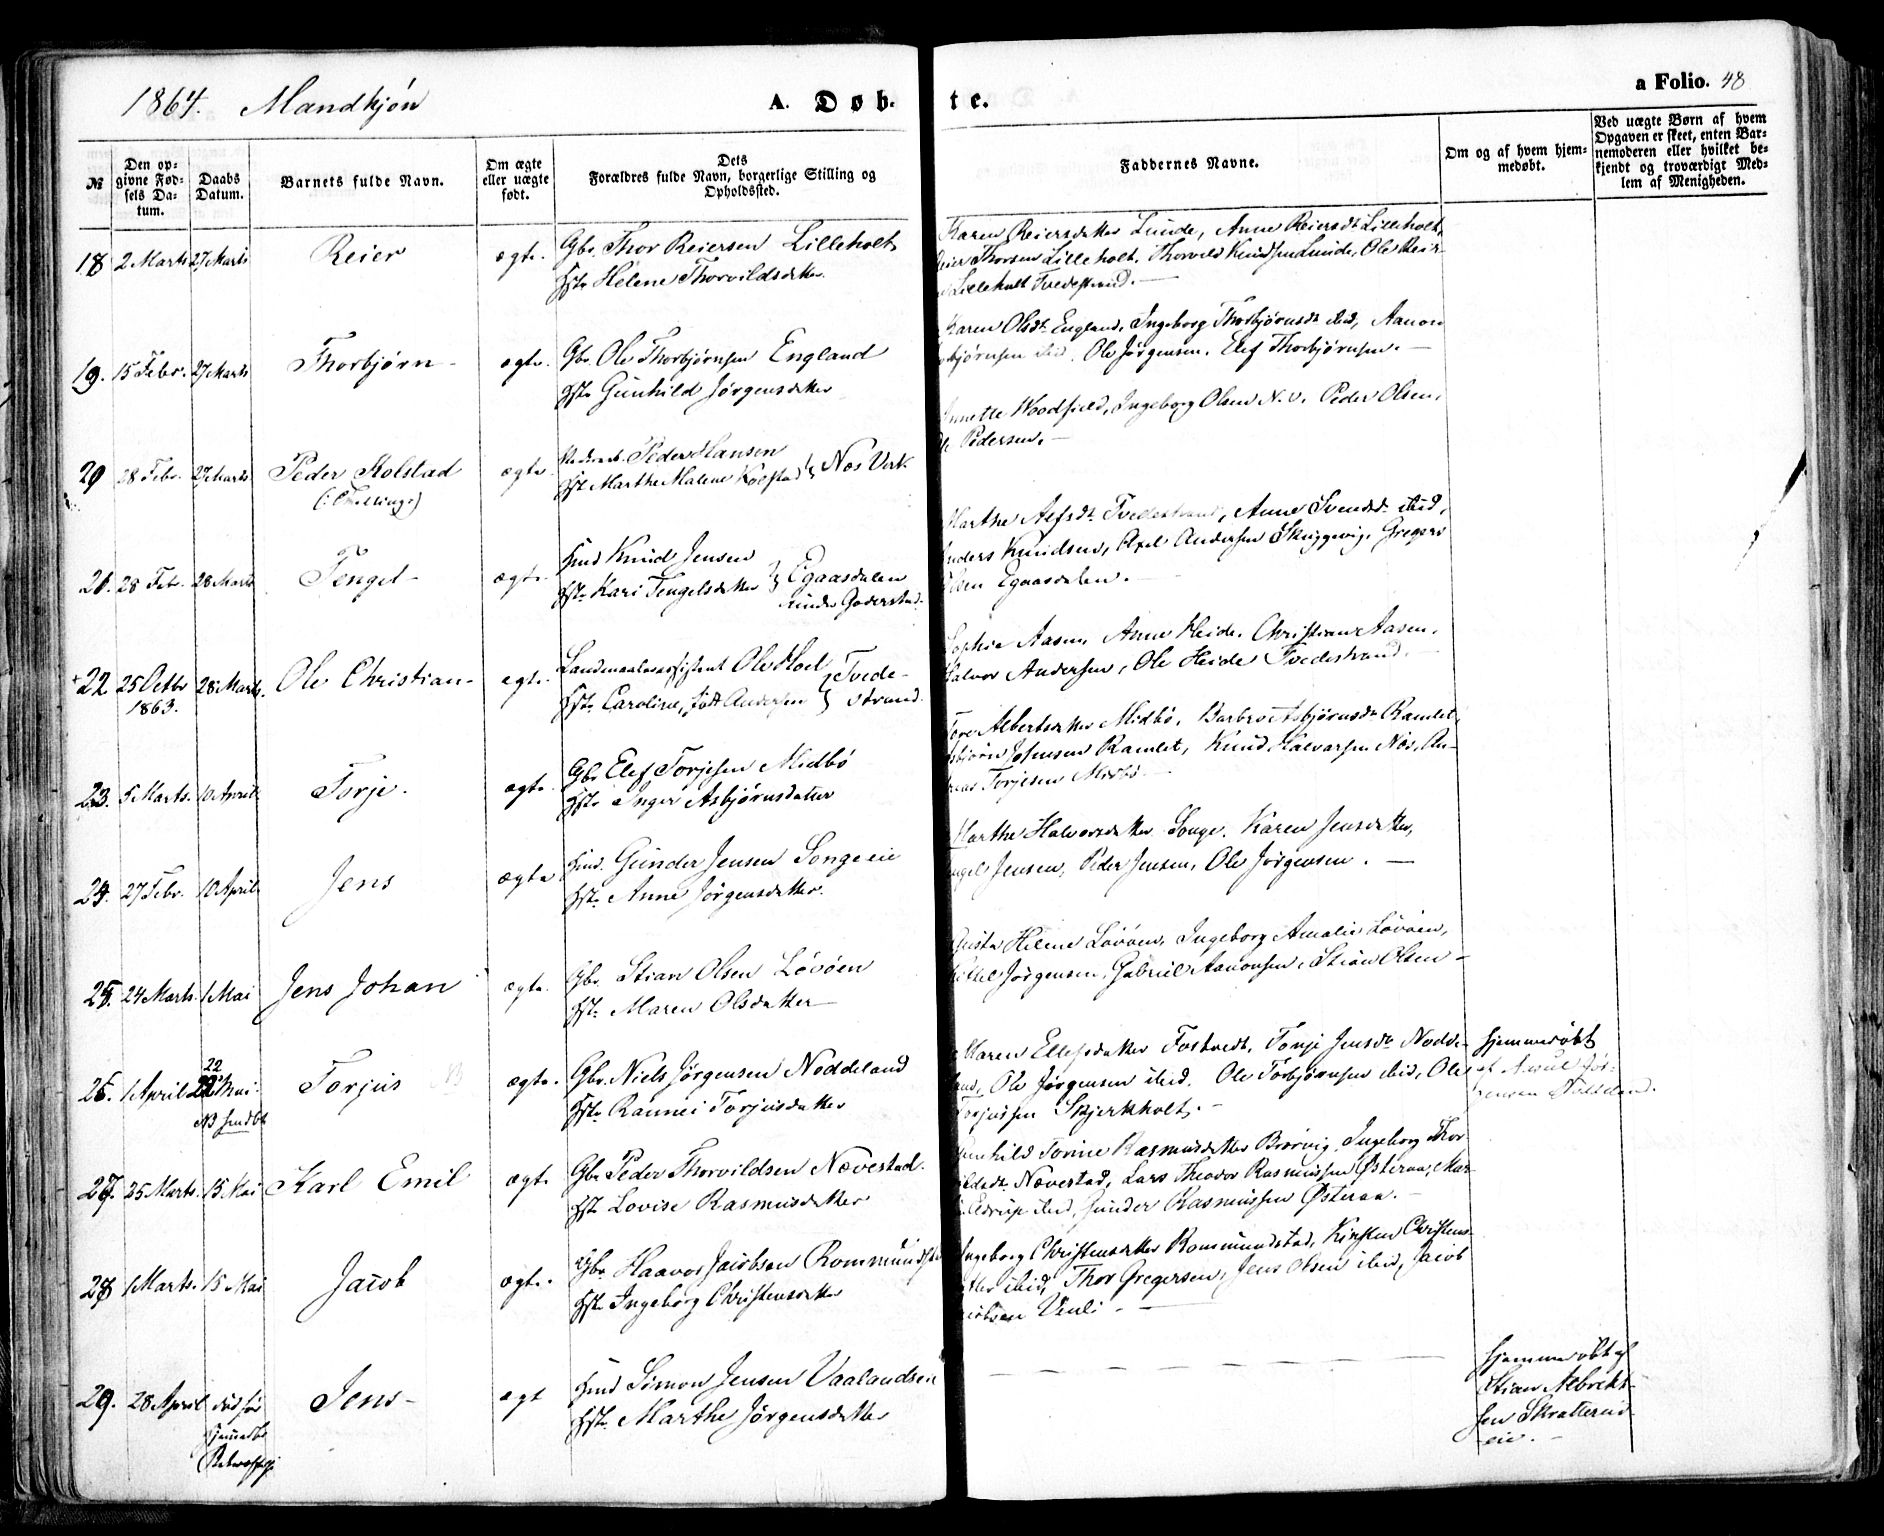 1864. Mandkjøn
A. Døb- te.
a Folio. 48
№
Den op-
givne Fød-
sels Da-
tum.
Daabs
Datum.
Barnets fulde Navn.
Om ægte
eller uægte
født.
Dets
Forældres fulde Navn, borgerlige Stilling og
Opholdssted.
Faddernes Navne.
Om og af hvem hjem-
medøbt.
Ved uægte Børn af hvem
Opgaven er skeet, enten Bar-
nemoderen eller hvilket be-
kjendt og troværdigt Med-
lem af Menigheden.
18 2 Marts 27 Marts Reier ægte. Gbr. Thor Reiersen Lilleholt
Hst. Helene Thorvildsdatter
Karen Reiersdatter Lunde, Anne Reiersdt Lilleholt,
Thorsen Lilleholt. Thorvild Knudsen Lunde, Ole Reier-
Lilleholt Tvedestrand. —
19. 15 Febr. 27 Marts Thorbjørn - ægte. Gbr. Ole Thorbjørnsen England
Hst. Gunhild Jørgensdatter
Karen Olsdt. England, Ingeborg Thorbjørnsdt ibid, Aanon
bjørnsen ibid. Ole Jørgensen. Elef Thorbjørnsen. —
20 28 Febr. 27 Marts Peder Kolstad ægte Peder Hansen
(: Tvilling :)
Hst. Marthe Malene Kolstad } Nes Verk
Annette Woodfield, Ingeborg Olsen N.V. Peder Olsen,
Pedersen. —
21. 28 Febr. 28 Marts Tengel - ægte. Hmd Knud Jensen
Hst. Kari Tengelsdatter } Egaasdalen
under Goderstad.
Marthe Alfsdt. Tvedestrand, Anne Svendsdt. ibid,
Anders Knudsen, Axel Andersen Skuggevig, Gregers
Egaasdalen. —
22 25 Octbr 28 Marts. Ole Christian - ægte. Landmaalerassistent Ole Hoel
1863.
Hst. Caroline, født Andersen } Tvede-
strand.
Sophie Aasen, Anne Heide. Christiane Aasen.
Halvor Andersen, Ole Heide Tvedestrand. —
23. 5 Marts. 10 April Torje. ægte. Gbr. Elef Torjesen Midbö
Hst. Inger Asbjørnsdatter
Tore Albertsdatter Midbö, Barbro Asbjørnsdt Ramlet,
Asbjörn Johnsen Ramlet, Knud Halvorsen Nes, An-
Torjesen Midbö. —
24. 27 Febr. 10 April Jens ægte Hmd. Gunder Jensen Songeeie
Hst. Anne Jørgensdatter.
Marthe Halvorsdatter Songe. Karen Jensdatter,
Jensen, Peder Jensen, Ole Jørgensen. —
25. 24 Marts. 1 Mai Jens Johan ægte. Gbr. Stian Olsen Lövöen
Hst. Maren Olsdatter —
Helene Lövöen, Ingeborg Amalie Lövöen,
Jørgensen, Gabriel Aanonsen, Stian Olsen —
26. 1 April 22 Mai. Torjus ægte. Gbr. Niels Jørgensen Noddeland
NB hmdbt
Hst. Rannei Torjusdatter
Maren Ellefsdatter Fostvedt, Torje Jensdt. Nodde-
land, Ole Jørgensen ibid. Ole Torbjørnsen ibid, Ole
Torjussen Skjerkholt. —
Hjemmedøbt
af Jør-
gensen
27. 25 Marts. 15 Mai Karl Emil ægte Gbr Peder Thorvildsen Nævestad.
Hst Lovise Rasmusdatter
Gunhild Torine Rasmusdatter Brørvig, Ingeborg Thor-
Nævestad, Lars Theodor Rasmussen Østeraa, Mar-
ibid, Gunder Rasmussen Østeraa. —
28 1 Marts. 15 Mai Jacob ægte. Gbr Haavor Jacobsen Rommundstad
Hst Ingeborg Christensdatter
Ingeborg Christensdatter Rommundstad, Kirsten Christens-
datter ibid, Thor Gregersen, Jens Olsen ibid, Jacob
Jacobsen —
29. 28 April død før Jens - ægt Hmd Simon Jensen Vaalandseie
Hst. Marthe Jørgensdatter
Hjemmedøbt af
Stian Albrikt-
sen Skratterud-
eie. —